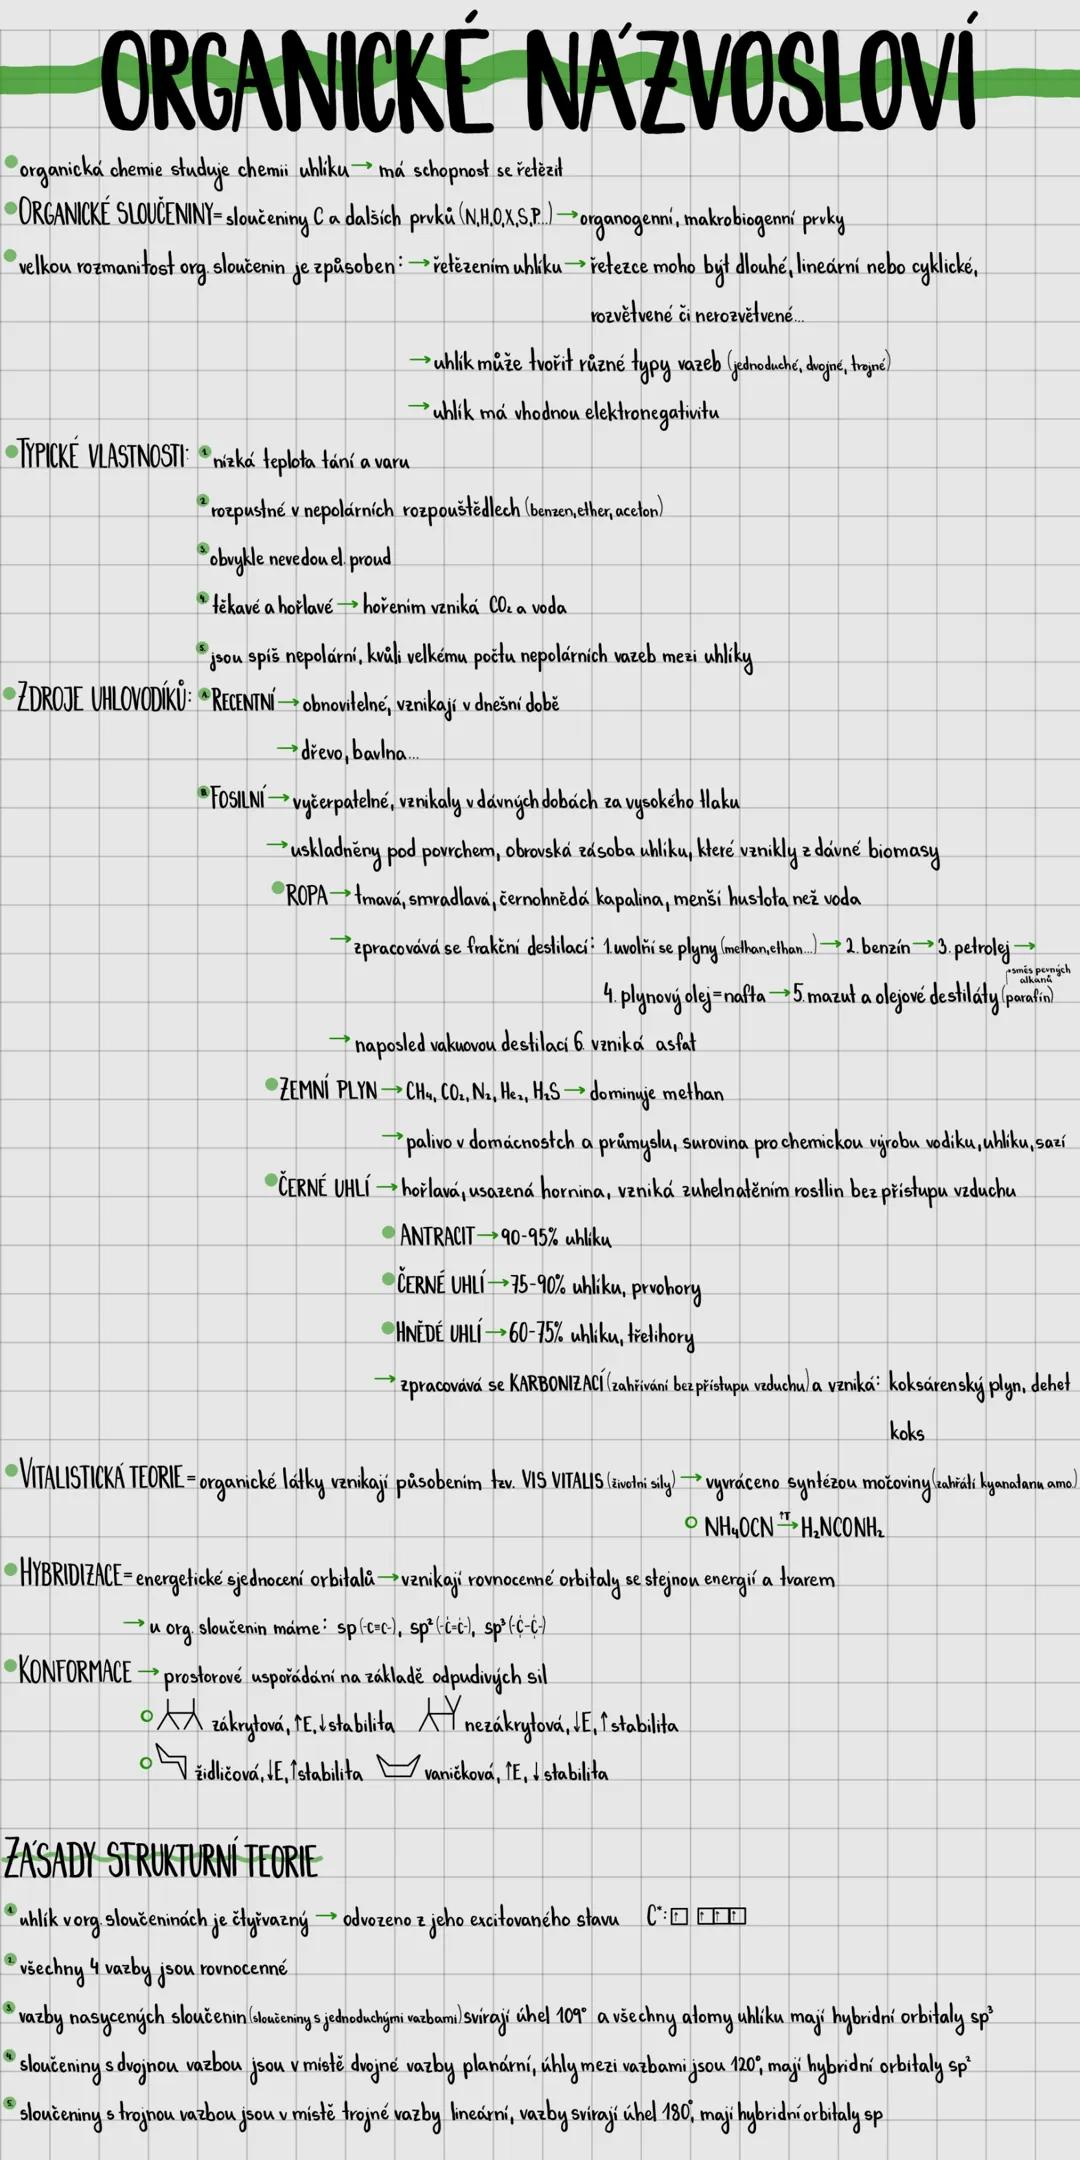 ORGANICKÉ NÁZVOSLOVÍ
organická chemie studuje chemii uhlíku → má schopnost se řetězit
ORGANICKÉ SLOUČENINY = sloučeniny C a dalších prvků (N,H,O,X,S,P...) → organogenní, makrobiogenní prvky
velkou rozmanitost org. sloučenin je způsoben: → řetězením uhlíku → řetezce moho být dlouhé, lineární nebo cyklické,
rozvětvené či nerozvětvené...
→ uhlík může tvořit různé typy vazeb (jednoduché, dvojné, trojné)
→ uhlík má vhodnou elektronegativitu
TYPICKÉ VLASTNOSTI: 1. nízká teplota tání a varu
2. rozpustné v nepolárních rozpouštědlech (benzen, ether, aceton)
3. obvykle nevedou el. proud
4. těkavé a hořlavé → hořením vzniká CO₂ a voda
5. jsou spíš nepolární, kvůli velkému počtu nepolárních vazeb mezi uhlíky
ZDROJE UHLOVODÍKŮ: A. RECENTNÍ → obnovitelné, vznikají v dnešní době
→ dřevo, bavlna...
B. FOSILNÍ → vyčerpatelné, vznikaly v dávných dobách za vysokého tlaku
→ uskladněny pod povrchem, obrovská zásoba uhlíku, které vznikly z dávné biomasy
ROPA → tmavá, smradlavá, černohnědá kapalina, menší hustota než voda
→ zpracovává se frakční destilací: 1. uvolňí se plyny (methan, ethan...) → 2. benzín → 3. petrolej →
směs pevných alkanů
4. plynový olej = nafta → 5. mazut a olejové destiláty (parafín)
→ naposled vakuovou destilací 6. vzniká asfat
ZEMNÍ PLYN → CH₄, CO₂, N₂, He₂, H₂S → dominuje methan
→ palivo v domácnostch a průmyslu, surovina pro chemickou výrobu vodíku, uhlíku, sazí
ČERNÉ UHLÍ → hořlavá, usazená hornina, vzniká zuhelnatěním rostlin bez přístupu vzduchu
ANTRACIT → 90-95% uhlíku
ČERNÉ UHLÍ → 75-90% uhlíku, prvohory
HNĚDÉ UHLÍ → 60-75% uhlíku, třetihory
→ zpracovává se KARBONIZACÍ (zahřívání bez přístupu vzduchu) a vzniká: koksárenský plyn, dehet
koks
VITALISTICKÁ TEORIE = organické látky vznikají působením tzv. VIS VITALIS (životní síly) → vyvráceno syntézou močoviny (zahřátí kyanatanu amo.)
NH₄OCN ↑T→ H₂NCONH₂
HYBRIDIZACE = energetické sjednocení orbitalů → vznikají rovnocenné orbitaly se stejnou energií a tvarem
→ u org. sloučenin máme: sp (-C≡C-), sp² (-Ċ=Ċ-), sp³ (-C-C-)
KONFORMACE → prostorové uspořádání na základě odpudivých sil
zákrytová, ↑E, ↓stabilita nezákrytová, ↓E, ↑stabilita
židličová, ↓E, ↑stabilita vaničková, ↑E, ↓stabilita
ZÁSADY STRUKTURNÍ TEORIE
1. uhlík v org. sloučeninách je čtyřvazný → odvozeno z jeho excitovaného stavu C*: ↑ ↑↑↑
2. všechny 4 vazby jsou rovnocenné
3. vazby nasycených sloučenin (sloučeniny s jednoduchými vazbami) svírají úhel 109° a všechny atomy uhlíku mají hybridní orbitaly sp³
4. sloučeniny s dvojnou vazbou jsou v místě dvojné vazby planární, úhly mezi vazbami jsou 120°, mají hybridní orbitaly sp²
5. sloučeniny s trojnou vazbou jsou v místě trojné vazby lineární, vazby svírají úhel 180°, mají hybridní orbitaly sp